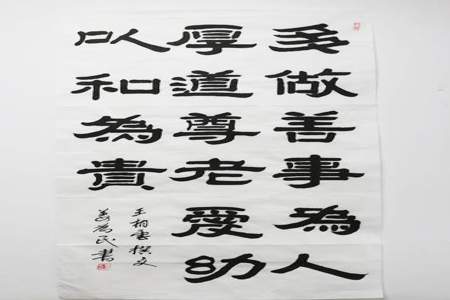 多做善事為人
厚道尊老愛幼
以和為貴
王柏雲撰文
姜為民書